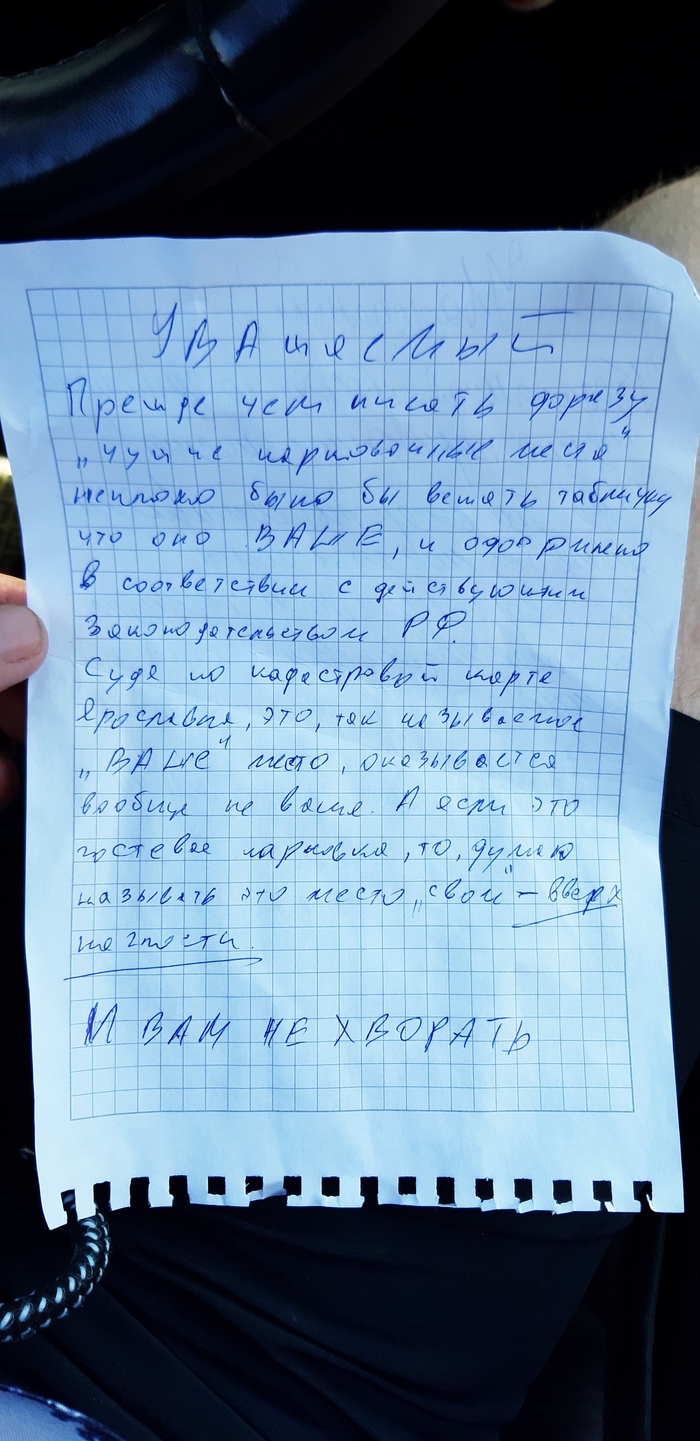 УВАжаемый
Прежде чем писать форазу
„чужие парковочные места"
неплохо было бы вешать табличку
что оно ВАШЕ, и оформлено
В соответствии с действующим
Законодательством РФ.
Судя по кадастровой карте
Ярославля, это, так называемое
„ВАШе" место, оказывается
вообще не ваше. А если это
гостевая парковка, то, думаю
называть это место „свои" – вверх
наглости.
И ВАМ НЕ ХВОРАТЬ